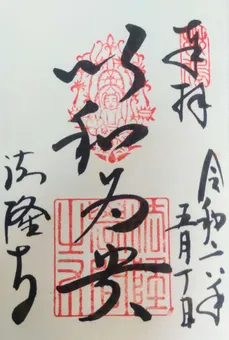 奉拝
令和六年
五月
以和為貴
法隆寺